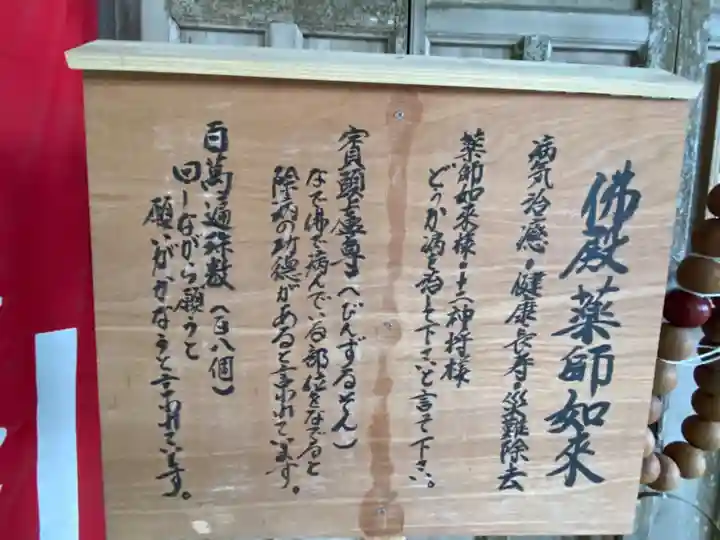 佛殿薬師如来
病気治癒・健康長寿・災難除去
薬師如来様・十二神将様
どうか病を治して下さいと言って下さい。
賓頭盧尊者(びんずるそん)
なで佛で病んでいる部位をなでると
除病の功徳があると言われています。
百萬遍珠数(百八個)
回しながら願うと
願いがかなうと言われています。